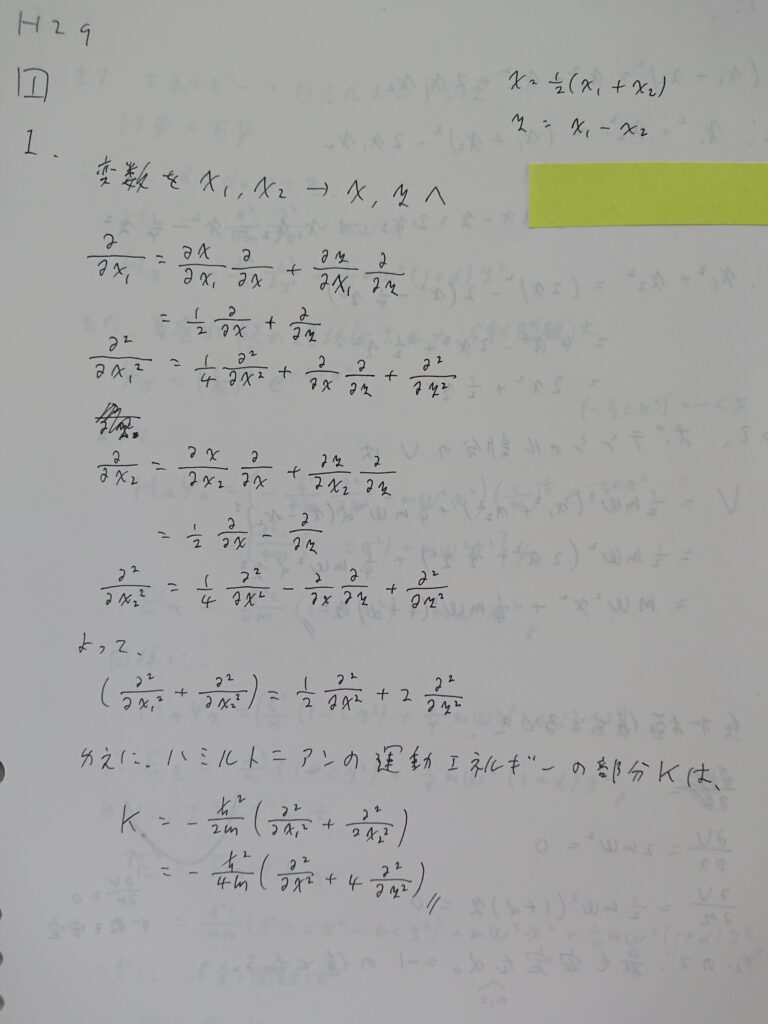 H29
1
x = 1/2 (x₁ + x₂)
z = x₁ - x₂
1.
変数を x₁, x₂ → x, z へ
∂/∂x₁ = ∂x/∂x₁ ∂/∂x + ∂z/∂x₁ ∂/∂z
= 1/2 ∂/∂x + ∂/∂z
∂²/∂x₁² = 1/4 ∂²/∂x² + ∂/∂x ∂/∂z + ∂²/∂z²
∂/∂x₂ = ∂x/∂x₂ ∂/∂x + ∂z/∂x₂ ∂/∂z
= 1/2 ∂/∂x - ∂/∂z
∂²/∂x₂² = 1/4 ∂²/∂x² - ∂/∂x ∂/∂z + ∂²/∂z²
よって、
(∂²/∂x₁² + ∂²/∂x₂²) = 1/2 ∂²/∂x² + 2 ∂²/∂z²
ゆえに、ハミルトニアンの運動エネルギーの部分Kは、
K = -ℏ²/2m (∂²/∂x₁² + ∂²/∂x₂²)
= -ℏ²/4m (∂²/∂x² + 4 ∂²/∂z²)〃